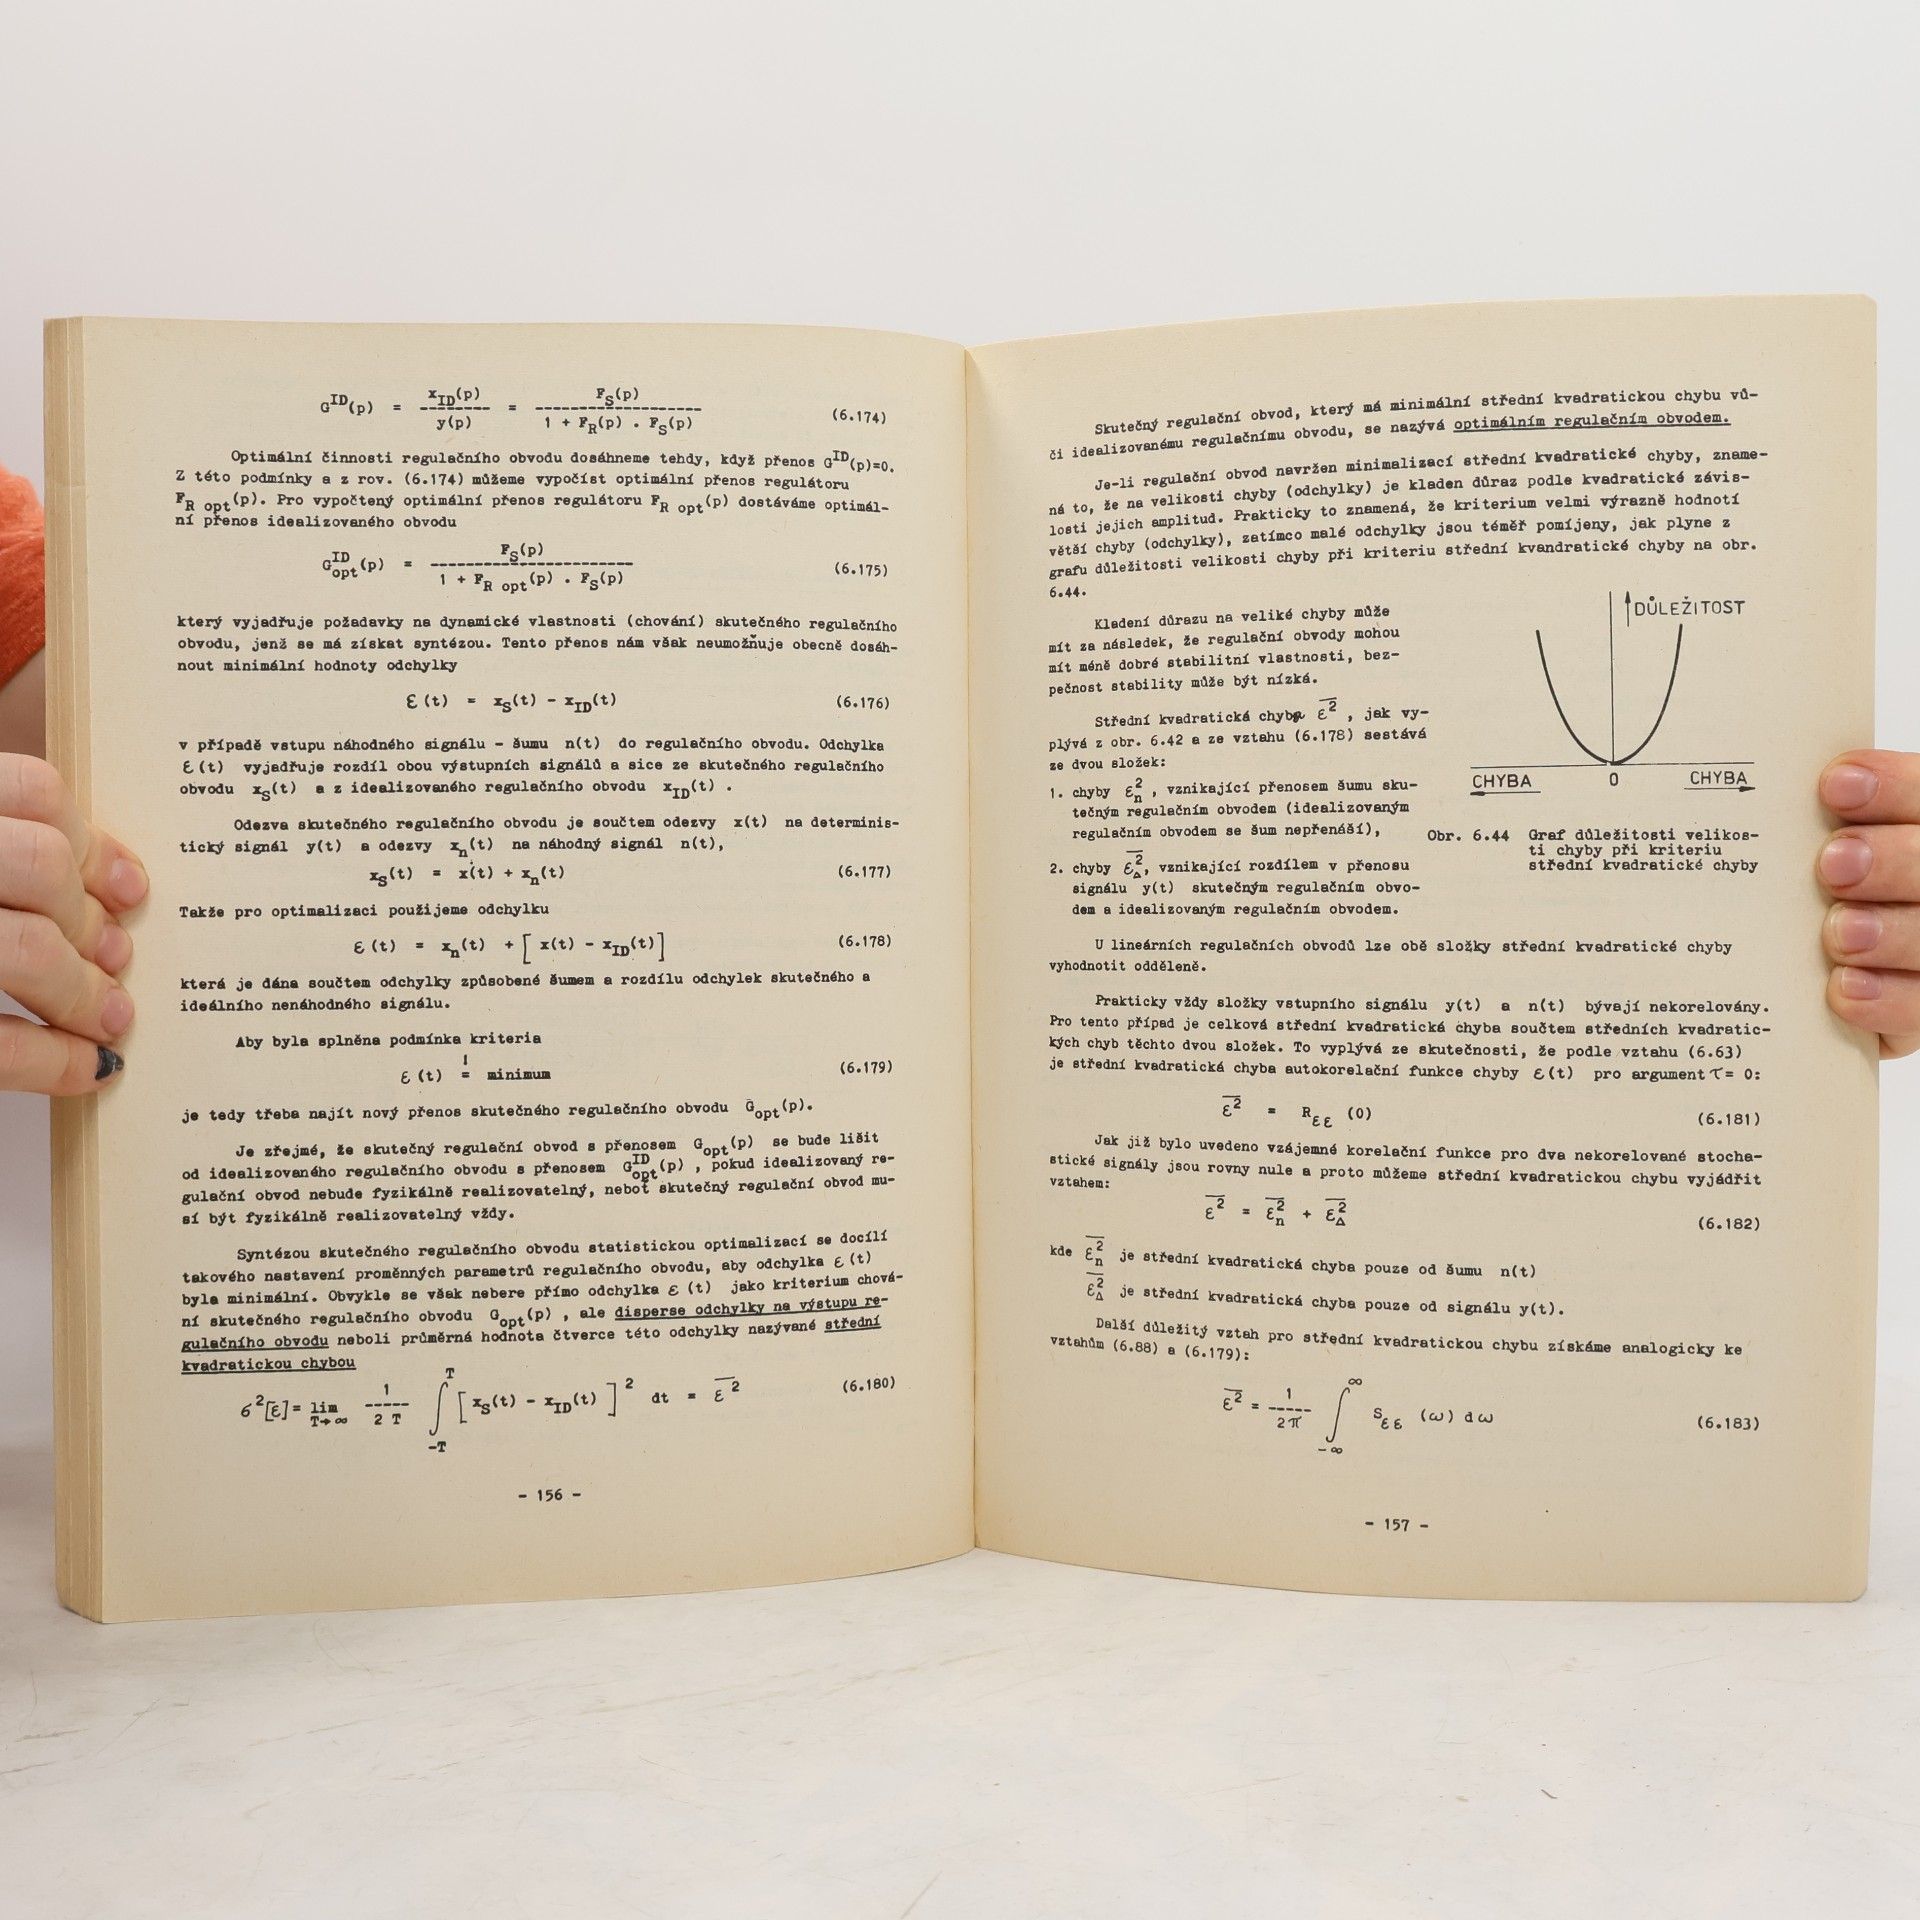 G^ID(p) = x_ID(p) / y(p) = F_S(p) / 1 + F_R(p) . F_S(p) (6.174)
Optimální činnosti regulačního obvodu dosáhneme tehdy, když přenos G^ID(p)=0.
Z této podmínky a z rov. (6.174) můžeme vypočíst optimální přenos regulátoru
F_R opt(p). Pro vypočtený optimální přenos regulátoru F_R opt(p) dostáváme optimál-
ní přenos idealizovaného obvodu
G^ID_opt(p) = F_S(p) / 1 + F_R opt(p) . F_S(p) (6.175)
který vyjadřuje požadavky na dynamické vlastnosti (chování) skutečného regulačního
obvodu, jenž se má získat syntézou. Tento přenos nám však neumožňuje obecně dosáh-
nout minimální hodnoty odchylky
ε(t) = x_S(t) - x_ID(t) (6.176)
v případě vstupu náhodného signálu - šumu n(t) do regulačního obvodu. Odchylka
ε(t) vyjadřuje rozdíl obou výstupních signálů a sice ze skutečného regulačního
obvodu x_S(t) a z idealizovaného regulačního obvodu x_ID(t) .
Odezva skutečného regulačního obvodu je součtem odezvy x(t) na determinis-
tický signál y(t) a odezvy x_n(t) na náhodný signál n(t),
x_S(t) = x(t) + x_n(t) (6.177)
Takže pro optimalizaci použijeme odchylku
ε(t) = x_n(t) + [ x(t) - x_ID(t)] (6.178)
která je dána součtem odchylky způsobené šumem a rozdílu odchylek skutečného a
ideálního nenáhodného signálu.
Aby byla splněna podmínka kriteria
ε(t) =! minimum (6.179)
je tedy třeba najít nový přenos skutečného regulačního obvodu G_opt(p).
Je zřejmé, že skutečný regulační obvod s přenosem G_opt(p) se bude lišit
od idealizovaného regulačního obvodu s přenosem G^ID_opt(p) , pokud idealizovaný re-
gulační obvod nebude fyzikálně realizovatelný, neboť skutečný regulační obvod mu-
sí být fyzikálně realizovatelný vždy.
Syntézou skutečného regulačního obvodu statistickou optimalizací se docílí
takového nastavení proměnných parametrů regulačního obvodu, aby odchylka ε(t)
byla minimální. Obvykle se však nebere přímo odchylka ε(t) jako kriterium chová-
ní skutečného regulačního obvodu G_opt(p) , ale disperse odchylky na výstupu re-
gulačního obvodu neboli průměrná hodnota čtverce této odchylky nazývané střední
kvadratickou chybou
σ²[ε]= lim T→∞ 1 / 2 T ∫ -T T [ x_S(t) - x_ID(t) ]² dt = ε̅² (6.180)
- 156 -
Skutečný regulační obvod, který má minimální střední kvadratickou chybu vů-
či idealizovanému regulačnímu obvodu, se nazývá optimálním regulačním obvodem.
Je-li regulační obvod navržen minimalizací střední kvadratické chyby, zname-
ná to, že na velikosti chyby (odchylky) je kladen důraz podle kvadratické závis-
losti jejich amplitud. Prakticky to znamená, že kriterium velmi výrazně hodnotí
větší chyby (odchylky), zatímco malé odchylky jsou téměř pomíjeny, jak plyne z
grafu důležitosti velikosti chyby při kriteriu střední kvandratické chyby na obr.
6.44.
Kladení důrazu na veliké chyby může
mít za následek, že regulační obvody mohou
mít méně dobré stabilitní vlastnosti, bez-
pečnost stability může být nízká.
Střední kvadratická chyba ε̅² , jak vy-
plývá z obr. 6.42 a ze vztahu (6.178) sestává
ze dvou složek:
1. chyby ε_n² , vznikající přenosem šumu sku-
tečným regulačním obvodem (idealizovaným
regulačním obvodem se šum nepřenáší),
2. chyby ε̅_Δ², vznikající rozdílem v přenosu
signálu y(t) skutečným regulačním obvo-
dem a idealizovaným regulačním obvodem.
DŮLEŽITOST
CHYBA 0 CHYBA
Obr. 6.44 Graf důležitosti velikos-
ti chyby při kriteriu
střední kvadratické chyby
U lineárních regulačních obvodů lze obě složky střední kvadratické chyby
vyhodnotit odděleně.
Prakticky vždy složky vstupního signálu y(t) a n(t) bývají nekorelovány.
Pro tento případ je celková střední kvadratická chyba součtem středních kvadratic-
kých chyb těchto dvou složek. To vyplývá ze skutečnosti, že podle vztahu (6.63)
je střední kvadratická chyba autokorelační funkce chyby ε(t) pro argument τ= 0:
ε̅² = R_εε (0) (6.181)
Jak již bylo uvedeno vzájemné korelační funkce pro dva nekorelované stocha-
stické signály jsou rovny nule a proto můžeme střední kvadratickou chybu vyjádřit
vztahem:
ε̅² = ε̅_n² + ε̅_Δ² (6.182)
kde ε̅_n² je střední kvadratická chyba pouze od šumu n(t)
ε̅_Δ² je střední kvadratická chyba pouze od signálu y(t).
Další důležitý vztah pro střední kvadratickou chybu získáme analogicky ke
vztahům (6.88) a (6.179):
ε̅² = 1 / 2π ∫ -∞ ∞ S_εε (ω) dω (6.183)
- 157 -